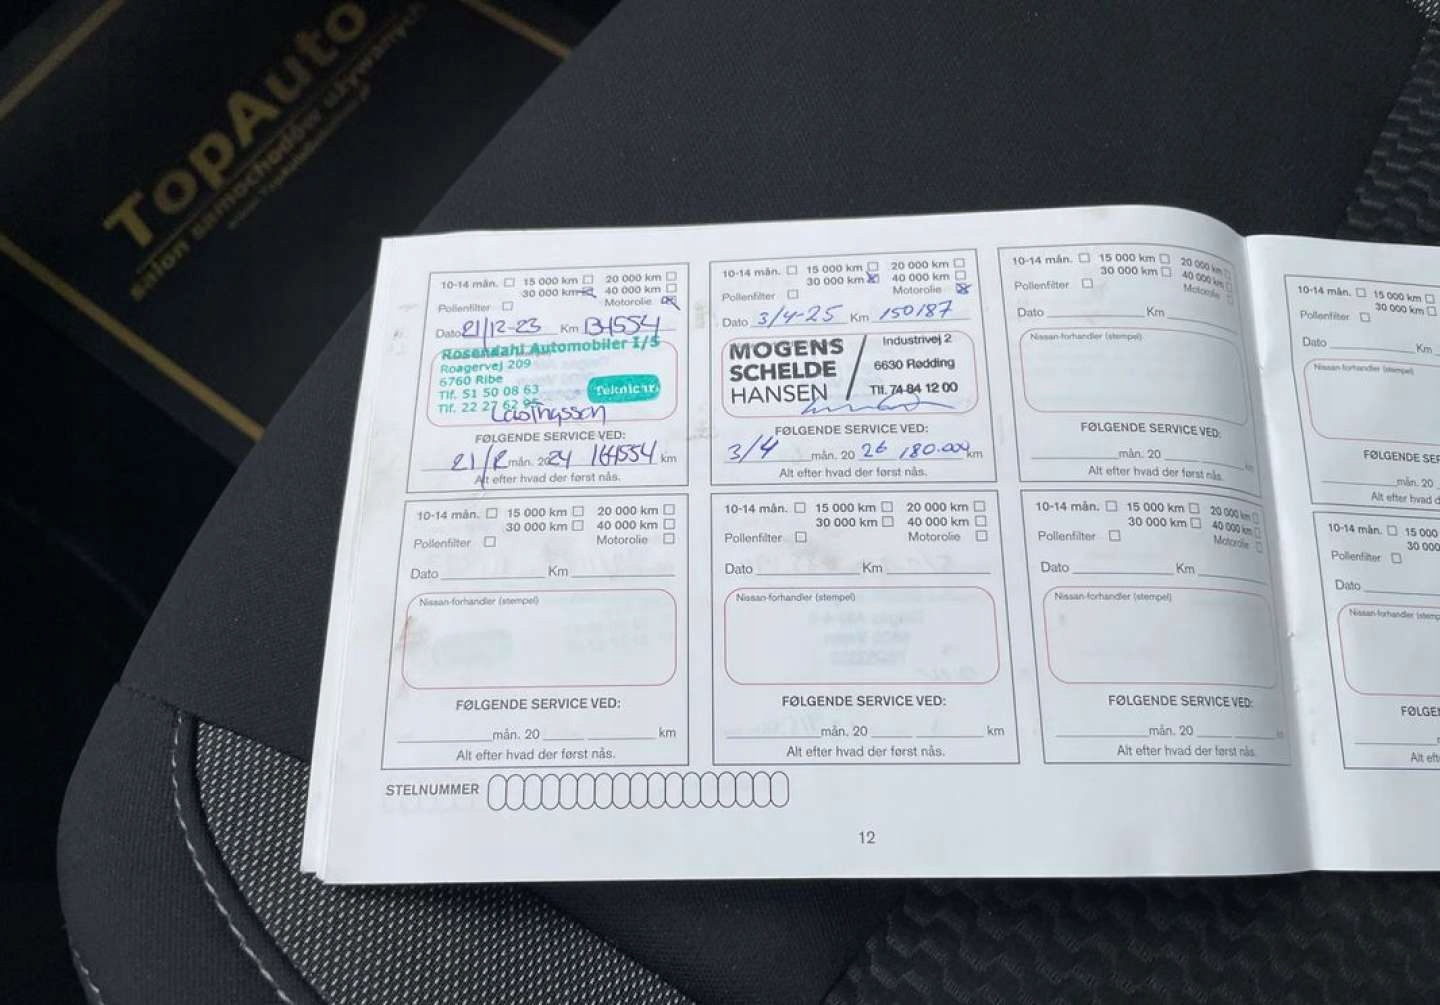 TopAuto
salon samochodów używanych
10-14 mån. 15 000 km 20 000 km
30 000 km 40 000 km
Pollenfilter Motorolie
Dato 21/12-23 Km 134554
Rosendahl Automobiler I/S
Roagervej 209
6760 Ribe
Tlf. 51 50 08 63
Tlf. 22 27 62 95
Teknicar
FØLGENDE SERVICE VED:
21/12 mån. 2024 164554 km
Alt efter hvad der først nås.
10-14 mån. 15 000 km 20 000 km
30 000 km 40 000 km
Pollenfilter Motorolie
Dato 3/4-25 Km 150187
MOGENS
SCHELDE
HANSEN
Industrivej 2
6630 Rødding
Tlf. 74 84 12 00
FØLGENDE SERVICE VED:
3/4 mån. 20 26 180.000 km
Alt efter hvad der først nås.
10-14 mån. 15 000 km 20 000 km
30 000 km 40 000 km
Pollenfilter Motorolie
Dato Km
Nissan-forhandler (stempel)
FØLGENDE SERVICE VED:
mån. 20 km
Alt efter hvad der først nås.
10-14 mån. 15 000 km
30 000 km
Pollenfilter
Dato Km
Nissan-forhandler (stempel)
FØLGENDE
mån. 20
Alt efter hvad
10-14 mån. 15 000 km 20 000 km
30 000 km 40 000 km
Pollenfilter Motorolie
Dato Km
Nissan-forhandler (stempel)
FØLGENDE SERVICE VED:
mån. 20 km
Alt efter hvad der først nås.
10-14 mån. 15 000 km 20 000 km
30 000 km 40 000 km
Pollenfilter Motorolie
Dato Km
Nissan-forhandler (stempel)
FØLGENDE SERVICE VED:
mån. 20 km
Alt efter hvad der først nås.
10-14 mån. 15 000 km 20 000 km
30 000 km 40 000 km
Pollenfilter Motorolie
Dato Km
Nissan-forhandler (stempel)
FØLGENDE SERVICE VED:
mån. 20
Alt efter hvad der først nås.
10-14 mån. 15 000
30 000
Pollenfilter
Dato
Nissan-forhandler
Alt
STELNUMMER
12